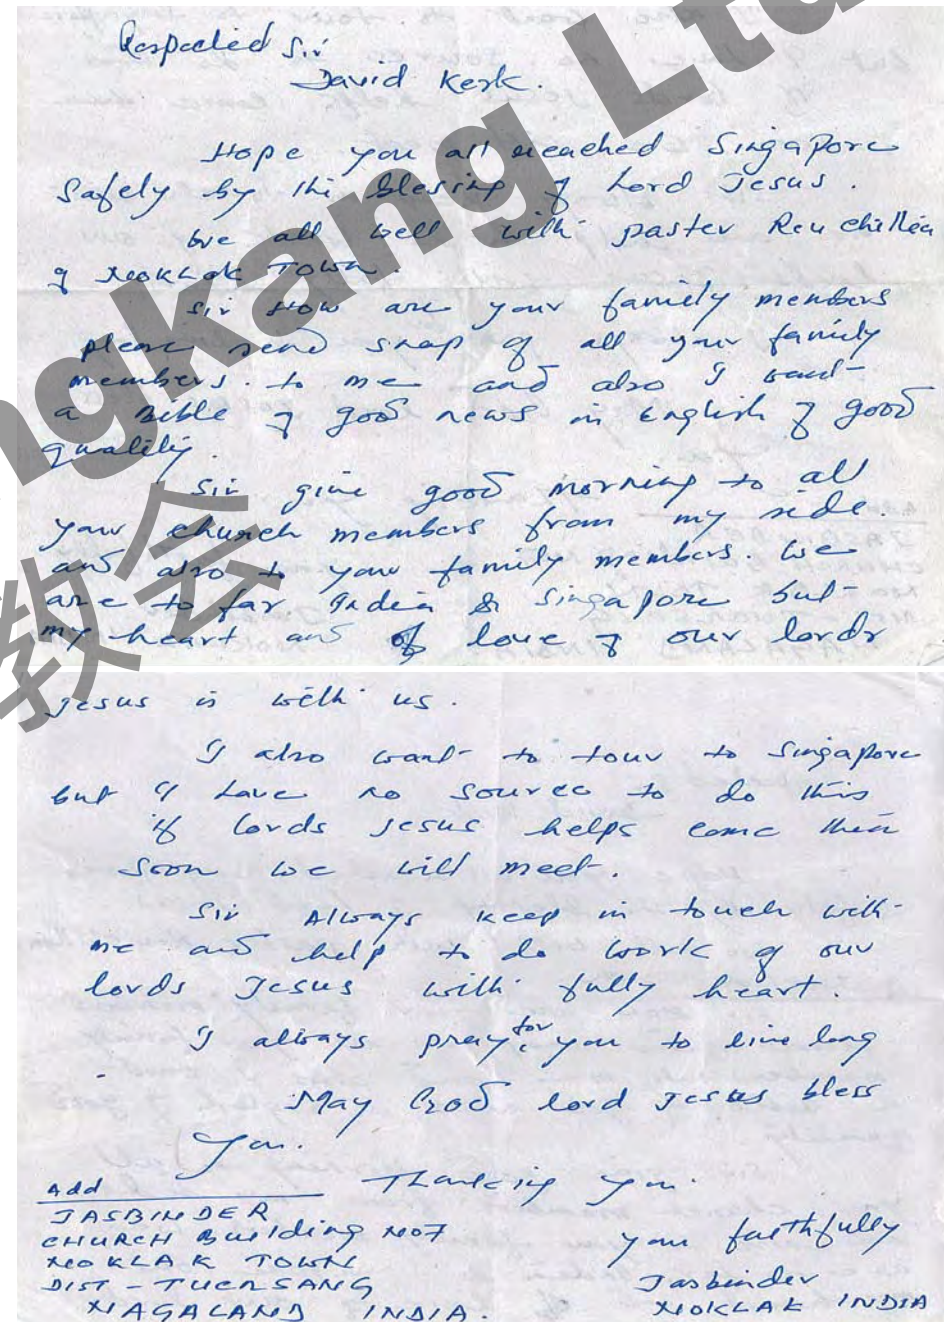 Respected Sir
David Kerk.
Hope you all reached Singapore
safely by the blesing of Lord Jesus.
We all well with paster
of NOKLAK TOWN.
Sir How are your family members
please send snap of all your family
members. to me and also I want
a Bible of good news in English of good
quality.
Sir give good morning to all
your church members from my side.
and also to your family members. We
are to far India & Singapore but
my heart and of love of our lords
Jesus is with us.
I also want to tour to Singapore
but I have no source to do this
if lords Jesus helps come then
soon we will meet.
Sir Always keep in touch with
me and help to do work of our
lords Jesus with fully heart.
I always pray for you to live long
May God lord Jesus bless
You.
Thanking you.
Add
JASBINDER
CHURCH Building NO7
NOKLAK TOWN
DIST - TUENSANG
NAGALAND INDIA.
your faithfully
Jasbinder
NOKLAK INDIA
ngkang Ltd
教会